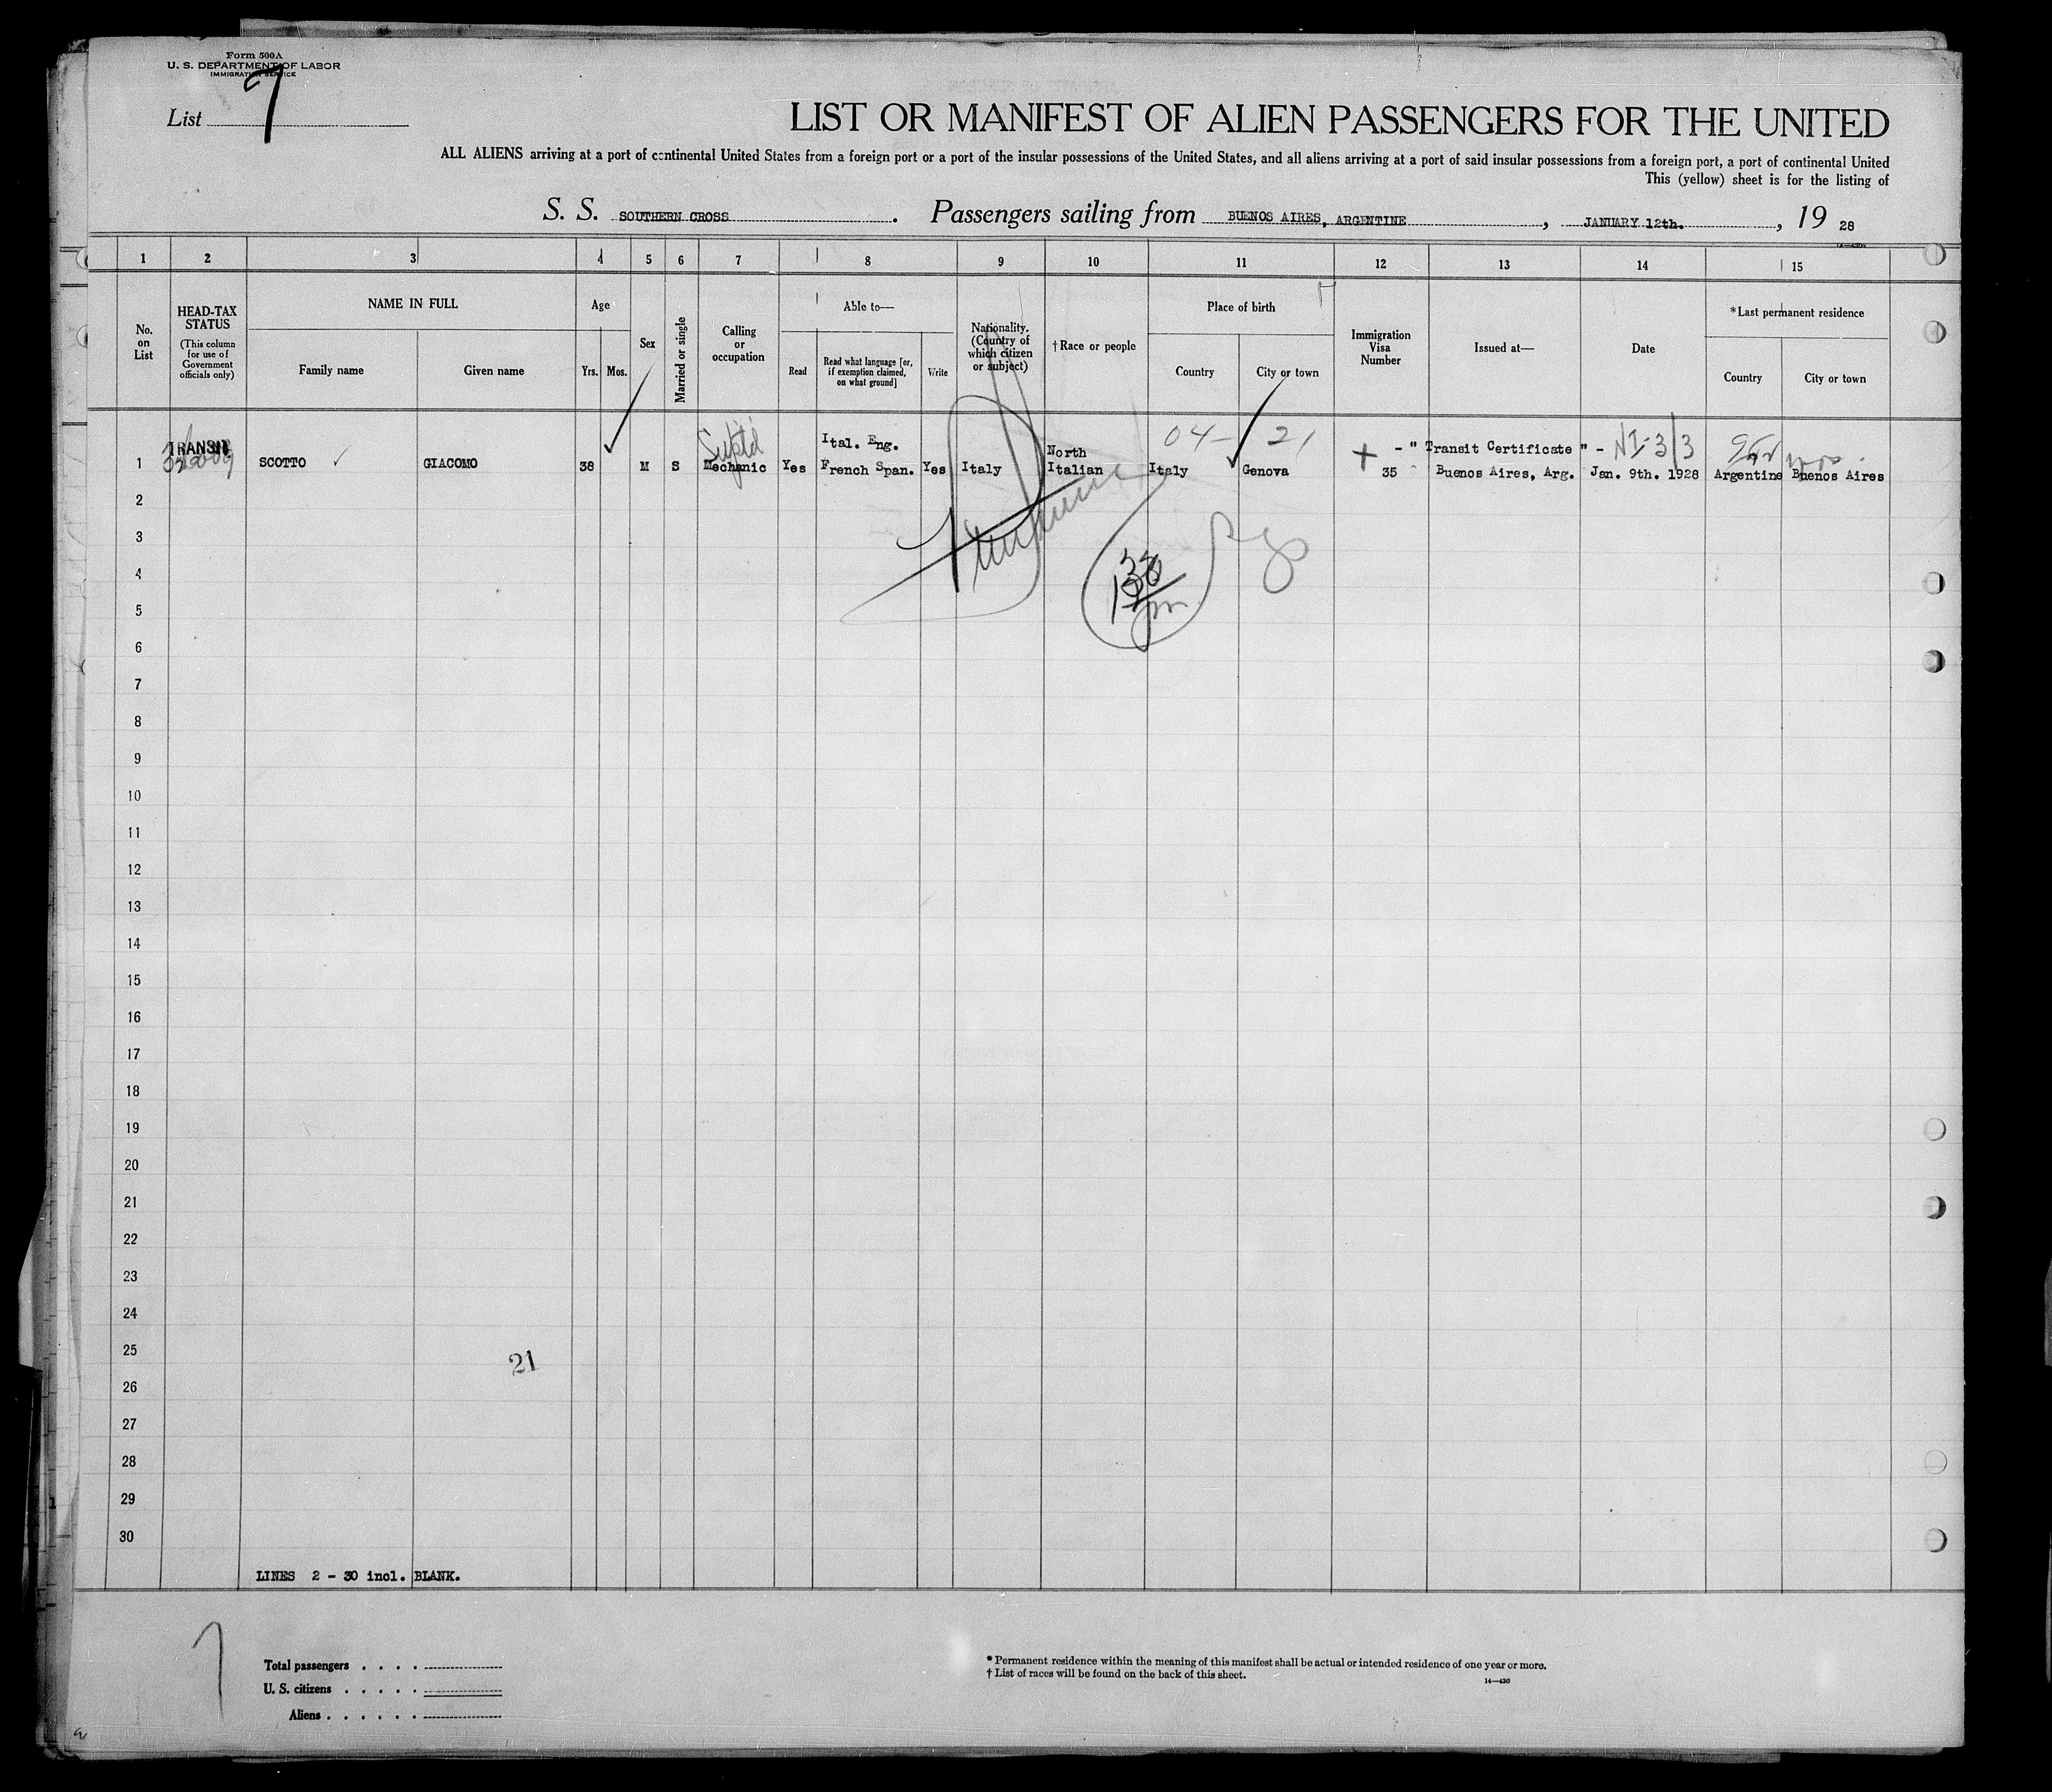 Form 500A
U. S. DEPARTMENT OF LABOR
IMMIGRATION SERVICE
List 7
LIST OR MANIFEST OF ALIEN PASSENGERS FOR THE UNITED
ALL ALIENS arriving at a port of continental United States from a foreign port or a port of the insular possessions of the United States, and all aliens arriving at a port of said insular possessions from a foreign port, a port of continental United
This (yellow) sheet is for the listing of
S. S. SOUTHERN CROSS. Passengers sailing from BUENOS AIRES, ARGENTINE, JANUARY 12th., 19 28
1 2 3 4 5 6 7 8 9 10 11 12 13 14 15
No. on List
HEAD-TAX STATUS
(This column for use of Government officials only)
NAME IN FULL
Family name
Given name
Age
Yrs.
Mos.
Sex
Married or single
Calling or occupation
Able to—
Read
Read what language [or, if exemption claimed, on what ground]
Write
Nationality. (Country of which citizen or subject)
†Race or people
Place of birth
Country
City or town
Immigration Visa Number
Issued at—
Date
*Last permanent residence
Country
City or town
TRANSIT
Ital. Eng.
North
04- 21
- " Transit Certificate " - NI-3/3
1 SCOTTO GIACOMO 38 M S Mechanic Yes French Span. Yes Italy Italian Italy Genova 35 Buenos Aires, Arg. Jan. 9th. 1928 Argentine Buenos Aires
2
3
4
5
6
7
8
9
10
11
12
13
14
15
16
17
18
19
20
21
22
23
24
25
21
26
27
28
29
30
LINES 2 - 30 incl. BLANK.
7
Total passengers . . . .
U. S. citizens . . . . .
Aliens . . . . . .
* Permanent residence within the meaning of this manifest shall be actual or intended residence of one year or more.
† List of races will be found on the back of this sheet.
14—430